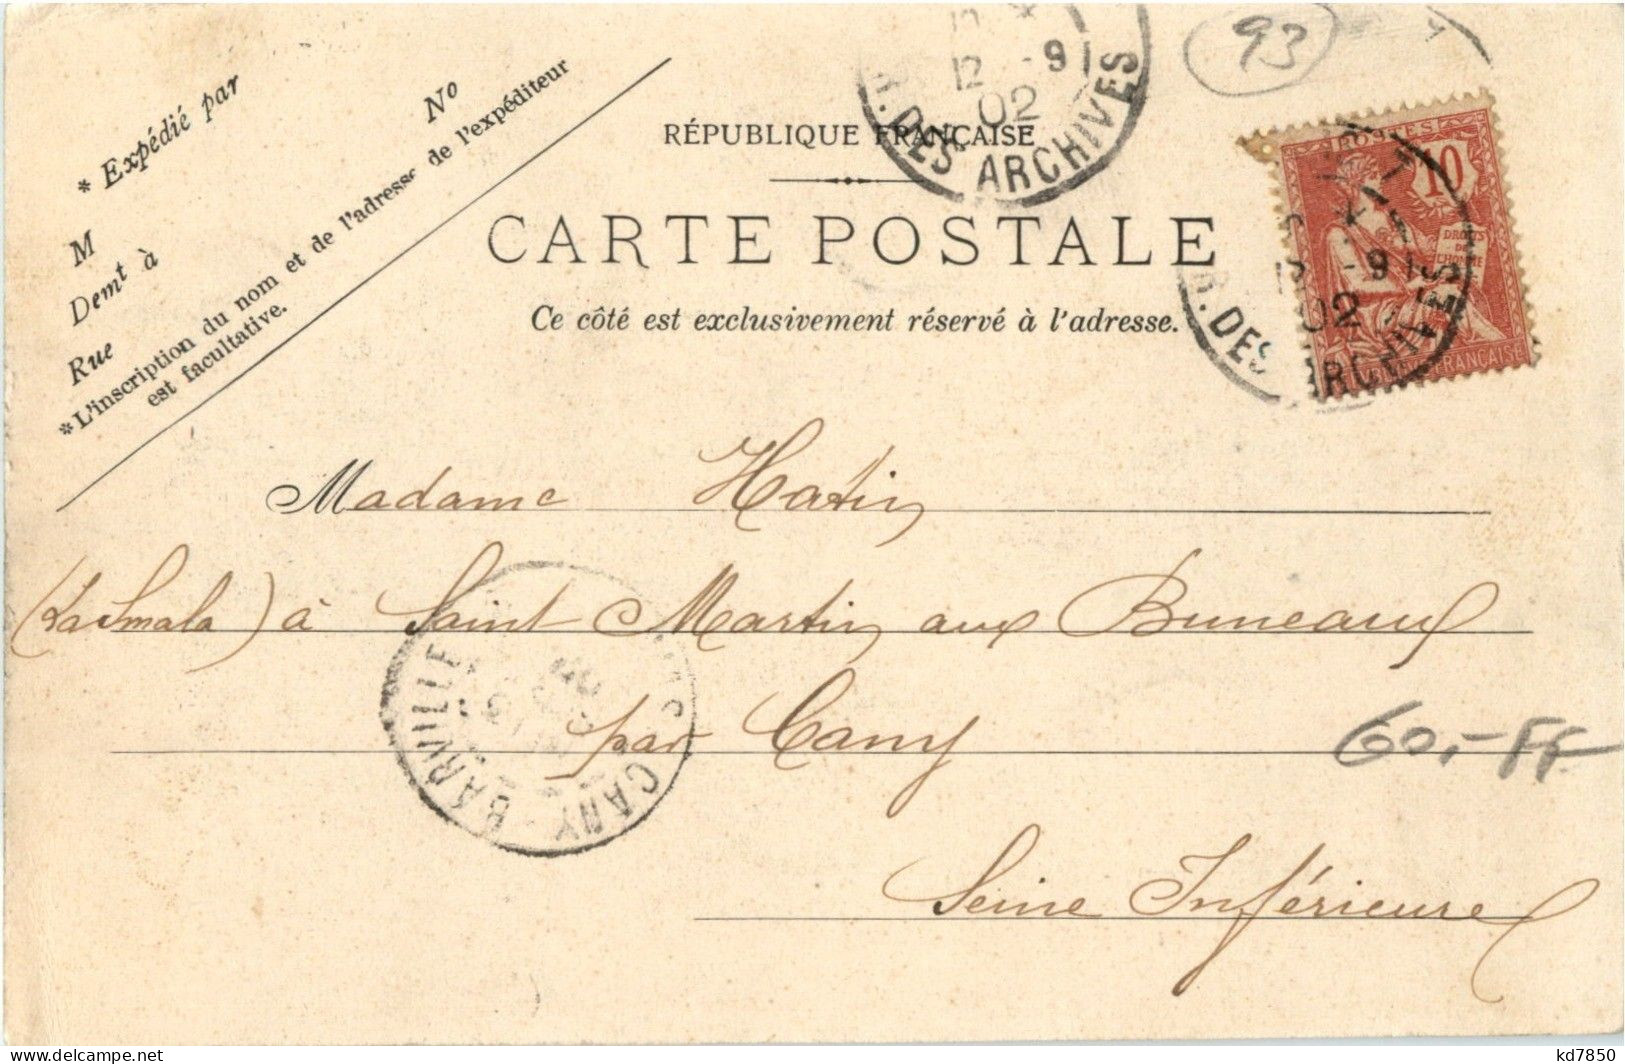 * Expédié par
No
M
Demt à
Rue
*L'inscription du nom et de l'adresse de l'expéditeur
est facultative.
12 -9
02
R. DES ARCHIVES
93
RÉPUBLIQUE FRANÇAISE
CARTE POSTALE
Ce côté est exclusivement réservé à l'adresse.
POSTES
10
DROITS
DE
L'HOMME
-9
02
R. DES ARCHIVES
Madame Hatin
(La Smala) à Saint Martin aux Buneaux
par Cany
60,- FF
Seine Inférieure
CANY - BARVILLE
Delcampe.net
kd7850